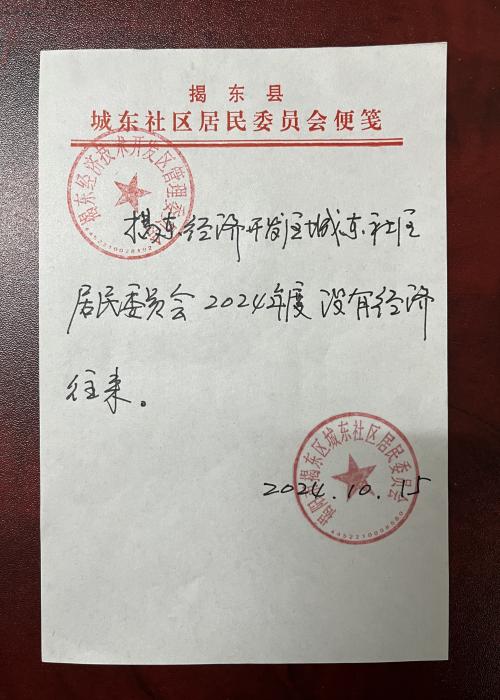 揭东县
城东社区居民委员会便笺
揭东经济技术开发区管理委员会
揭东经济开发区城东社区
居民委员会2024年度没有经济
往来。
揭阳市揭东区城东社区居民委员会
2024.10.15